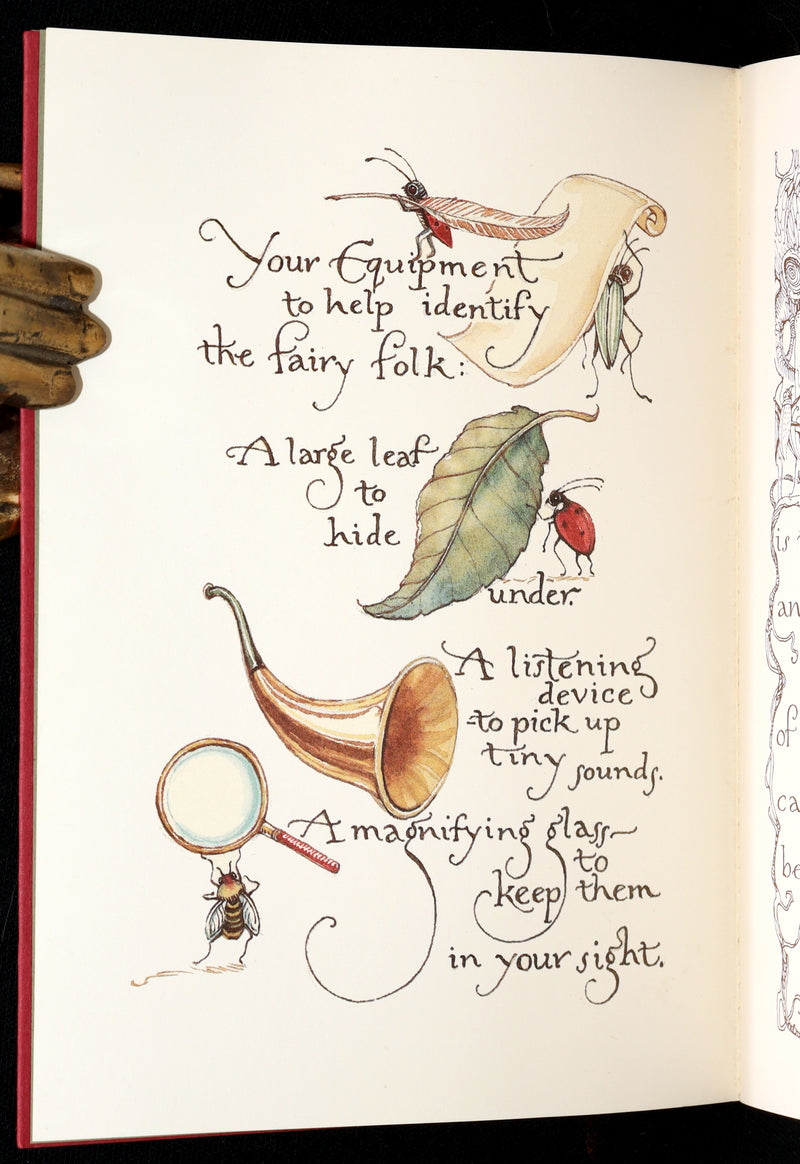 Your Equipment
to help identify
the fairy folk:
A large leaf
to
hide
under.
A listening
device
to pick up
tiny sounds.
A magnifying glass
to
keep them
in your sight.
is
an
of
ca
be